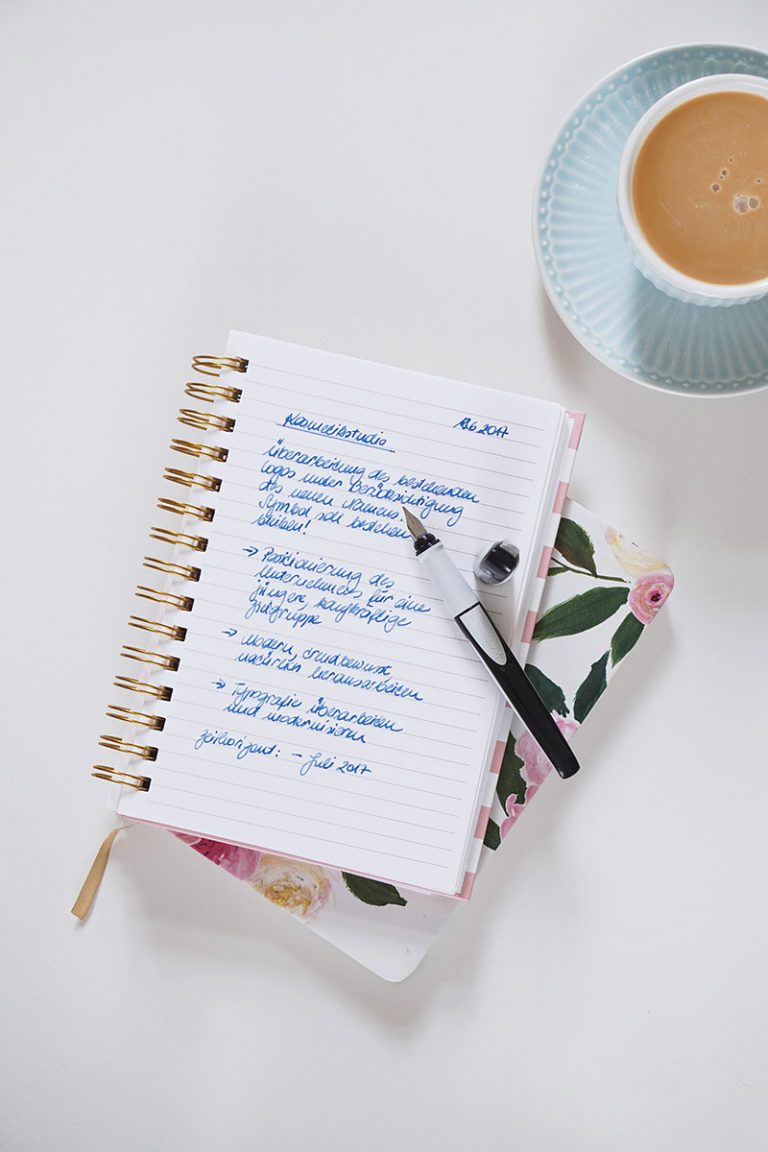 Kosmetikstudio 1.6 2017
Überarbeitung des bestehenden
Logos unter Berücksichtigung
des neuen Namens.
Symbol soll bestehen
bleiben!
→ Positionierung des
Unternehmens für eine
jüngere, kaufkräftige
Zielgruppe
→ Modern, trendbewusst,
natürlich herausarbeiten
→ Typografie überarbeiten
und modernisieren
Zeithorizont: - Juli 2017